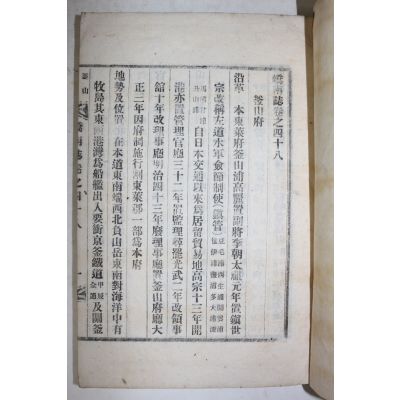 嶠南誌卷之四十八
釜山府
沿革 本東萊府釜山浦高麗置副將李朝太祖元年置鎭世
宗改稱左道水軍僉節制使(鎭管)豆毛浦西生浦開雲浦
包伊浦 多大浦
自日本交通以來爲居留貿易地高宗十三年開
港亦置管理官廳三十二年置監理尋罷光武二年改領事
館十年改理事廳明治四十三年廢理事廳置釜山府廳大
正三年因府訪施行割東萊郡一部爲本府
地勢及位置 在本道東南端西北負山岳東南對海洋中有
牧島其東南港灣爲船艦出入要衝京釜鐵道甲辰
及關釜
釜山
嶠南誌卷之四十八
一